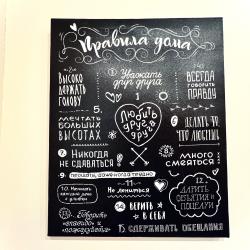 Правила дома
1. Уважать
друг друга
2.
Высоко
держать
голову
Всегда
говорить
правду
4. Любить
друг
друга
5.
Мечтать
больших
высотах
6. Делать то
что любишь
7. Никогда
не сдаваться!
8.
много
смеяться
9.
10. Начинать
каждый день
с улыбки
11
Не лениться
12.
Дарить
объятия и
поцелуи
13. Говорить
«спасибо» и
«пожалуйста»
14. Верить
в себя
15. Сдерживать обещания